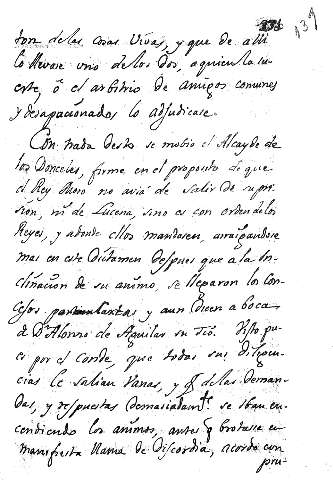 139
tor de las cosas Vivas, y que de alli
lo llevase uno de los dos, a quien la su-
erte, ô el arbitrio de amigos comunes
y desapacionados lo adjudicase.
Con nada desto se movio el Alcayde de
los Donceles, firme en el proposito de que
el Rey Moro no avia de salir de su pri-
sion, ni de Lucena, sino es con orden de los
Reyes, y adonde ellos mandasen, arraigandose
mas en este Dictamen despues que a la In-
clinacion de su animo, se llegaron los con-
cejos y aun dicen a boca
de Dn. Alonso de Aguilar su Tio. Visto pu-
es por el Conde que todas sus diligen-
cias le salian vanas, y q de las deman-
das, y respuestas demasiadamte. se iban en-
cendiendo los animos, antes q brotase en
manifiesta llama de Discordia, acordo con
pru-